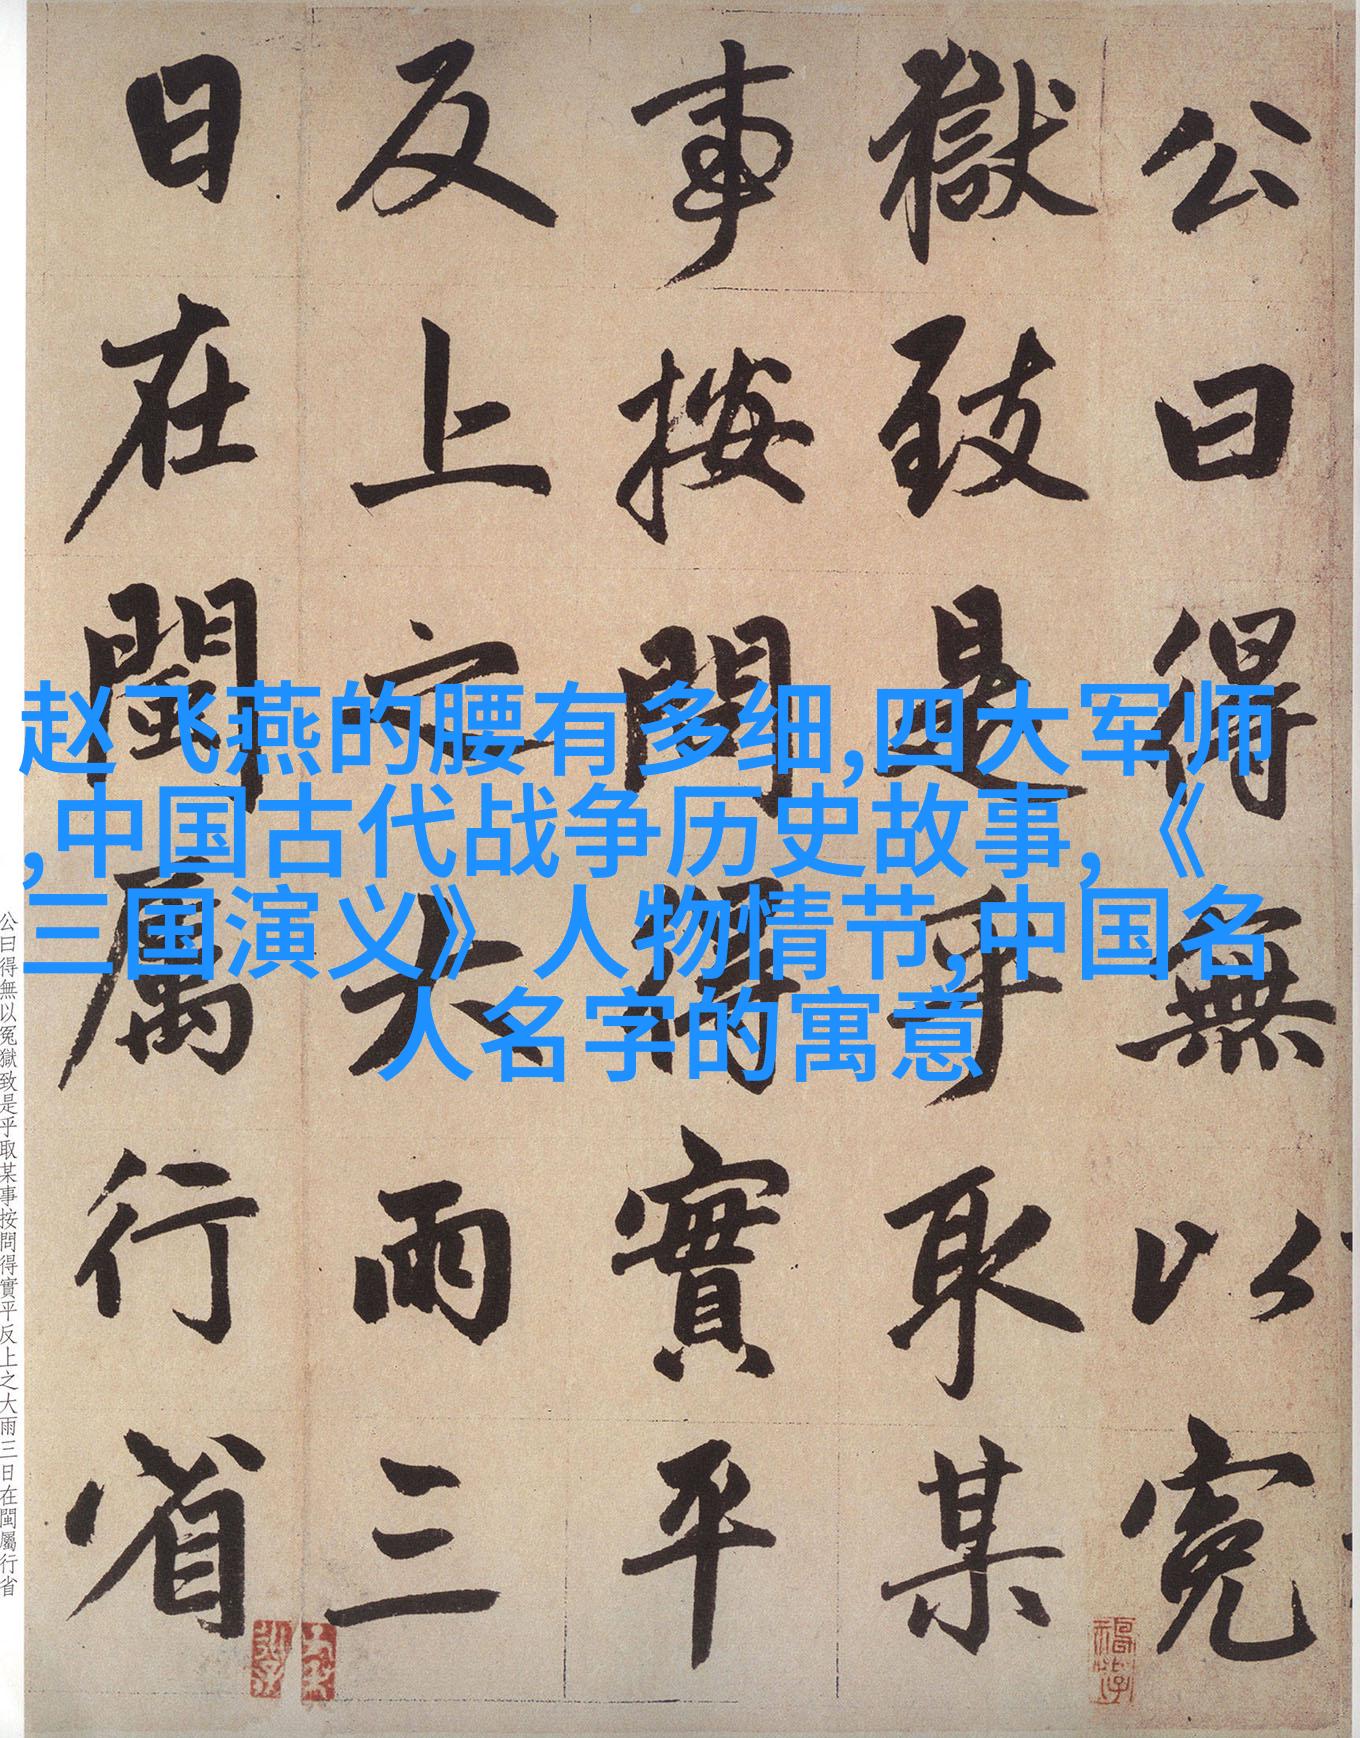 公曰得無以冤
獄致是乎取某
事按問得實平
反上之大雨三
日在閩屬行省
赵飞燕的腰有多细,四大军师
,中国古代战争历史故事,《
三国演义》人物情节,中国名
人名字的寓意
公曰得無以冤獄致是乎取某事按問得實平反上之大雨三日在閩屬行省